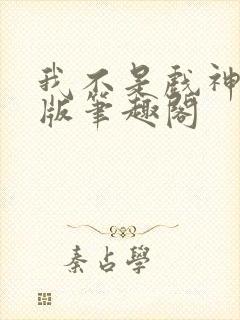 我不是戲神
版筆趣閣
秦占學